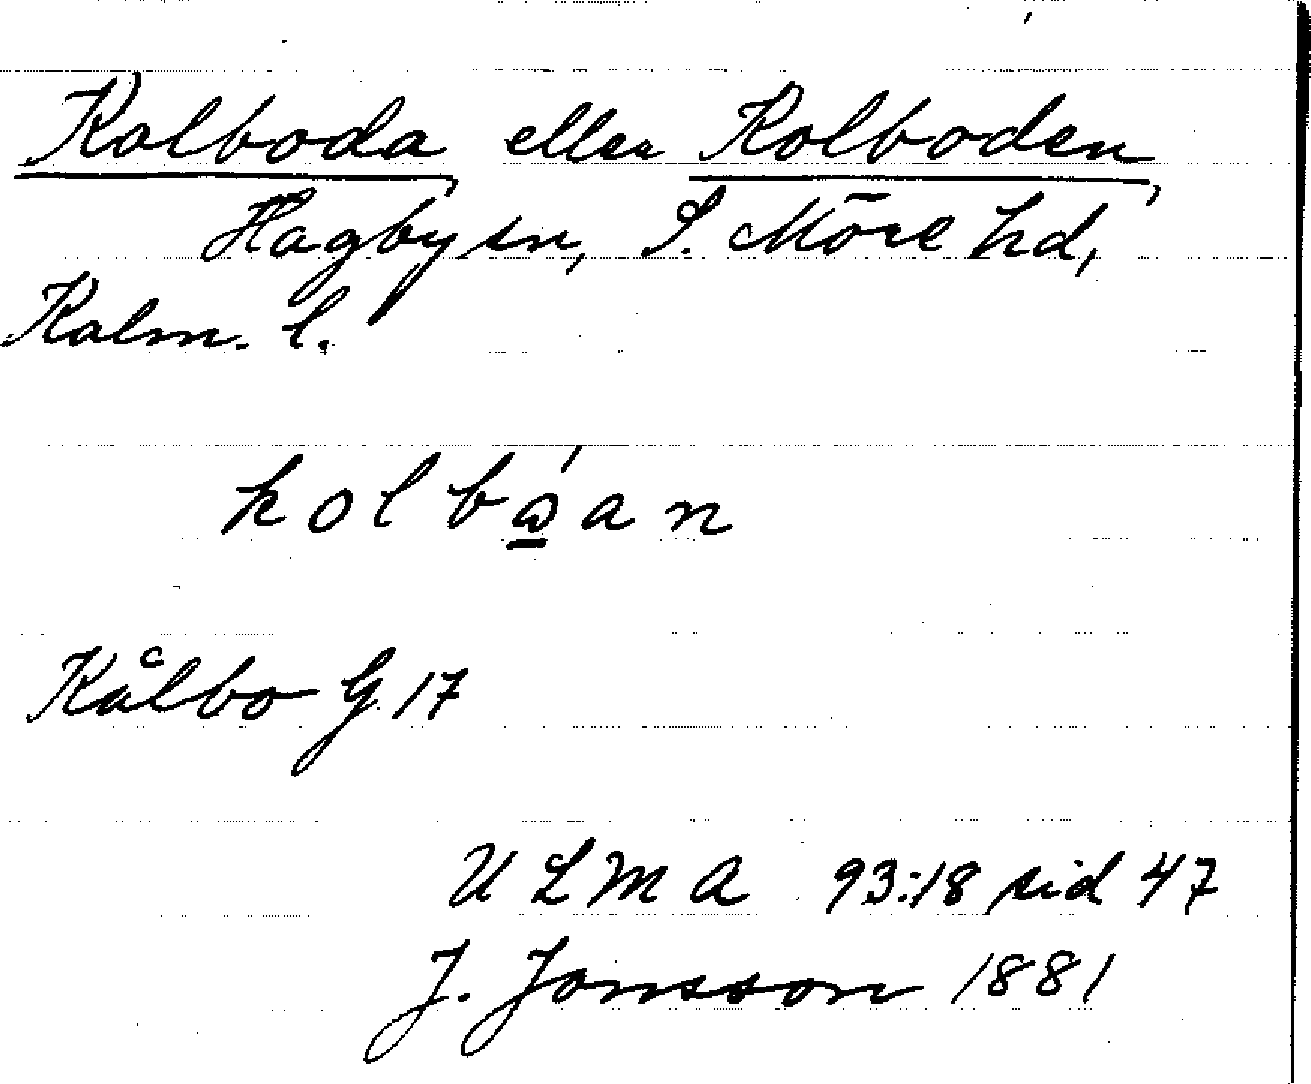 Kolboda eller Kolboden,
Hagby sn, S. Möre hd,
Kalm. l.
kolbǫ́an
Kålbo G 17
ULMA 93:18 sid 47
J. Jonsson 1881